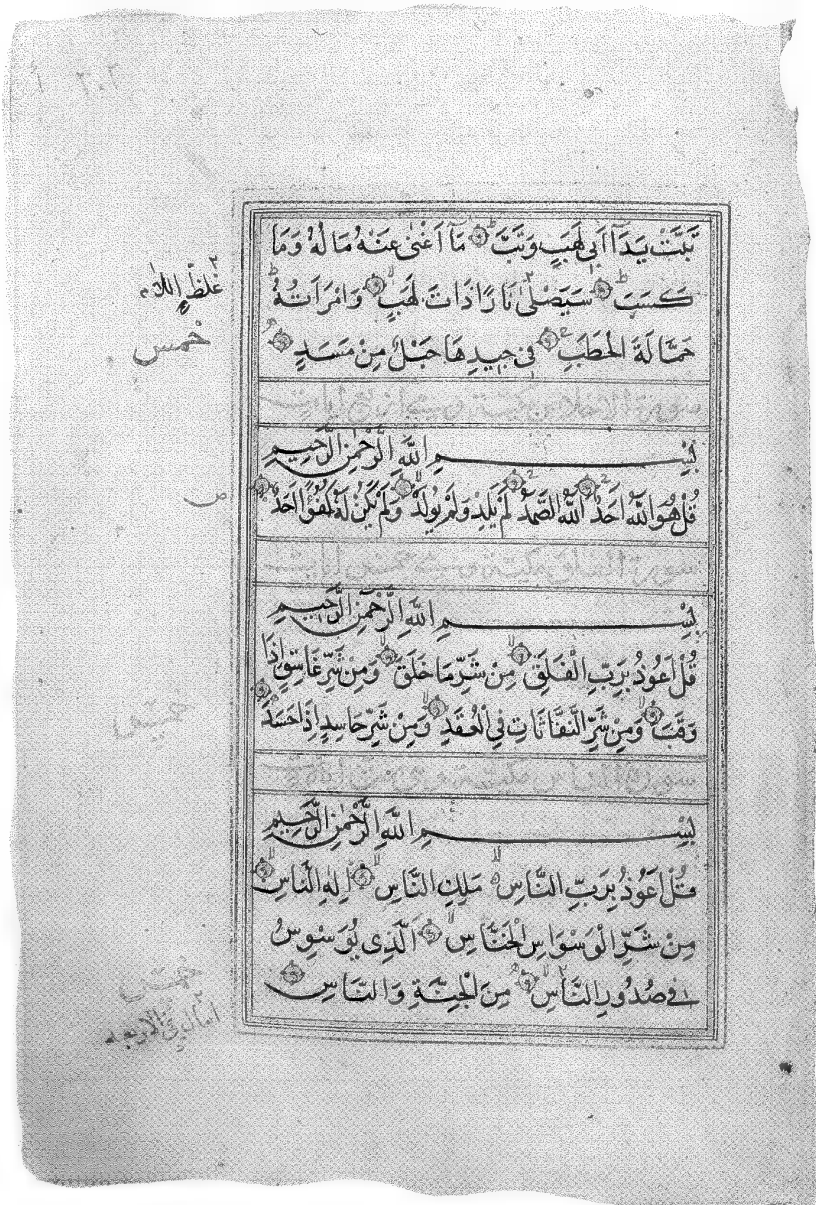 تَبَّتْ يَدَآ اَبِي لَهَبٍ وَتَبَّ مَآ اَغْنٰى عَنْهُ مَا لُهُ وَمَا
كَسَبَ سَيَصْلٰى نَارًا ذَاتَ لَهَبٍ وَامْرَاَتُهُ
حَمَّالَةَ الْحَطَبِ فِي جِيدِهَا حَبْلٌ مِنْ مَسَدٍ
سورة الاخلاص مكية وهي اربع ايات
بِسْمِ اللّٰهِ الرَّحْمٰنِ الرَّحِيمِ
قُلْ هُوَ اللّٰهُ اَحَدٌ اَللّٰهُ الصَّمَدُ لَمْ يَلِدْ وَلَمْ يُولَدْ وَلَمْ يَكُنْ لَهُ كُفُوًا اَحَدٌ
سورة الفلق مكية وهي خمس ايات
بِسْمِ اللّٰهِ الرَّحْمٰنِ الرَّحِيمِ
قُلْ اَعُوذُ بِرَبِّ الْفَلَقِ مِنْ شَرِّ مَا خَلَقَ وَمِنْ شَرِّ غَاسِقٍ اِذَا
وَقَبَ وَمِنْ شَرِّ النَّفَّاثَاتِ فِي الْعُقَدِ وَمِنْ شَرِّ حَاسِدٍ اِذَا حَسَدَ
سورة الناس مكية وهي ست ايات
بِسْمِ اللّٰهِ الرَّحْمٰنِ الرَّحِيمِ
قُلْ اَعُوذُ بِرَبِّ النَّاسِ مَلِكِ النَّاسِ اِلٰهِ النَّاسِ
مِنْ شَرِّ الْوَسْوَاسِ الْخَنَّاسِ اَلَّذِي يُوَسْوِسُ
فِي صُدُورِ النَّاسِ مِنَ الْجِنَّةِ وَالنَّاسِ
خمس